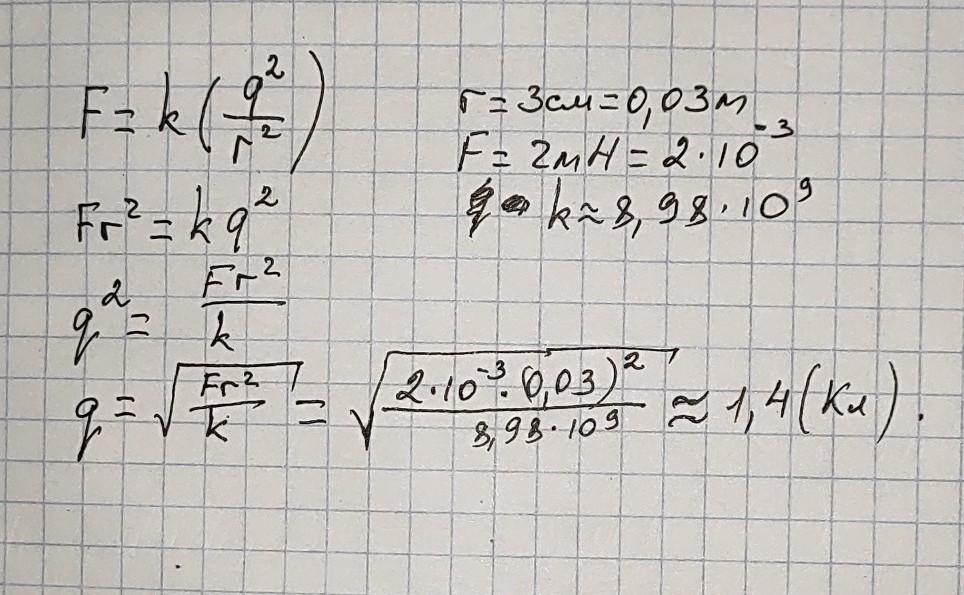 F = k (q²/r²)
Fr² = k q²
q² = Fr²/k
q = √(Fr²/k) = √(2·10⁻³·(0,03)²/8,98·10⁹) ≈ 1,4 (Кл).
r = 3см = 0,03м
F = 2мН = 2·10⁻³
k ≈ 8,98·10⁹